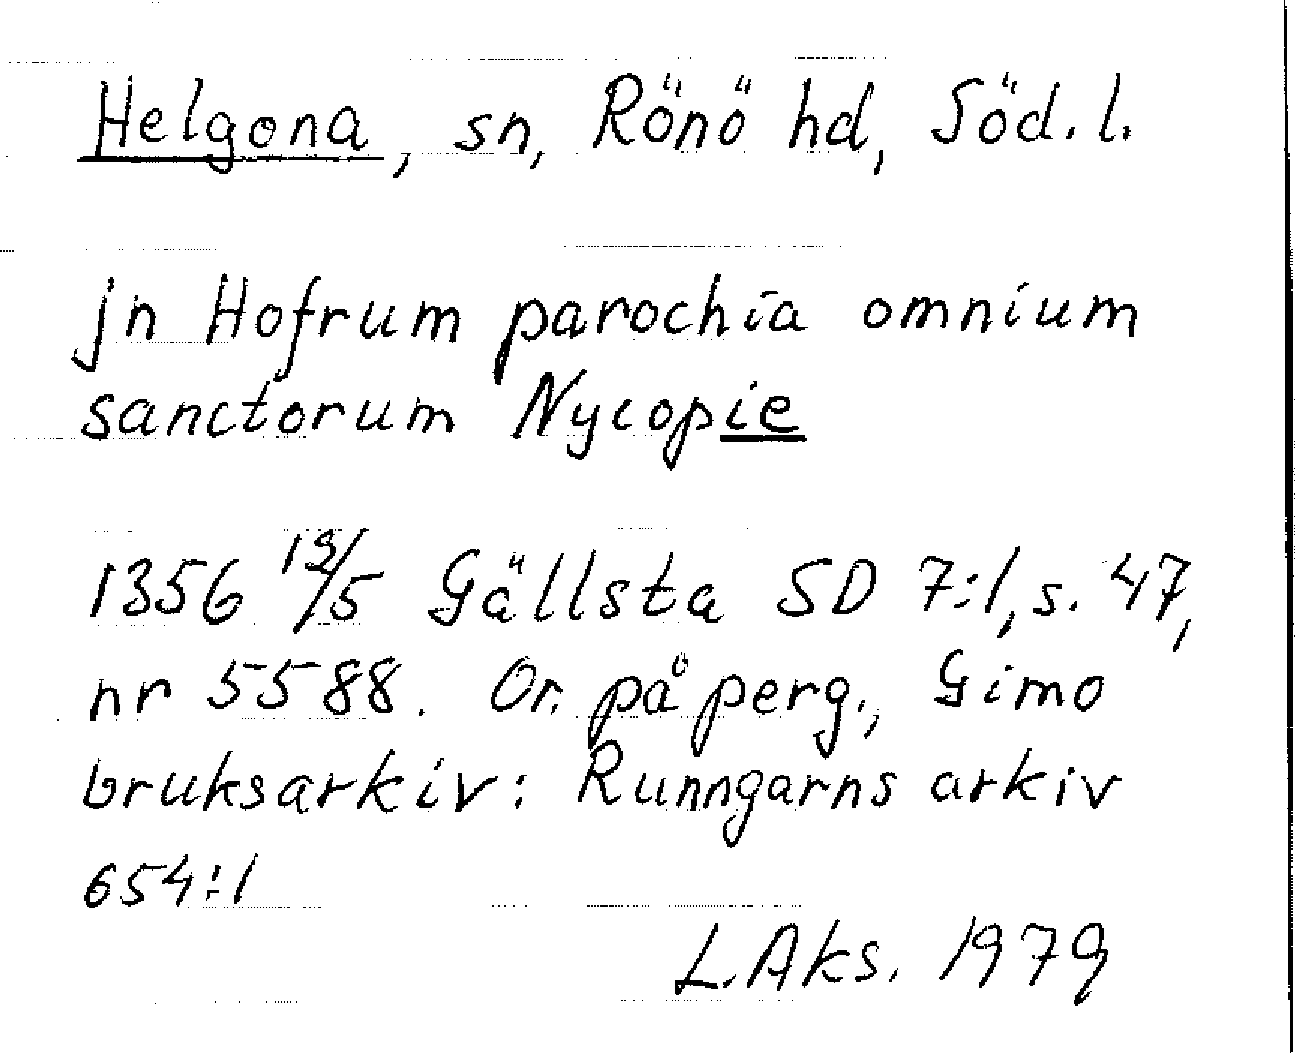 Helgona, sn, Rönö hd, Söd. l.
jn Hofrum parochia omnium
sanctorum Nycopie
1356 13/5 Gällsta SD 7:1, s. 47,
nr 5588. Or. på perg., Gimo
bruksarkiv: Runngarns arkiv
654:1
L. Aks. 1979